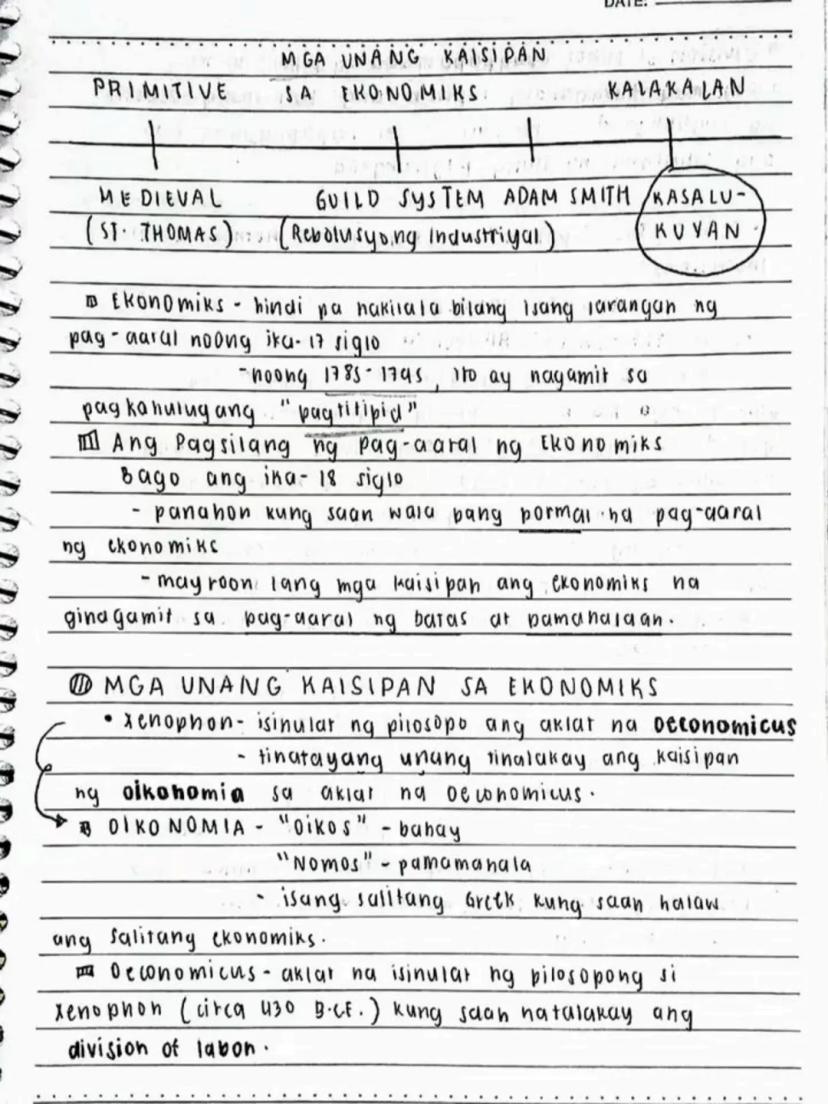 DATE:
MGA UNANG KAISIPAN
PRIMITIVE SA EKONOMIKS KALAKALAN
MEDIEVAL GUILD SYSTEM ADAM SMITH KASALU-
(ST. THOMAS) (Rebolusyong Industriyal) KUYAN
Ekonomiks - hindi pa nakilala bilang isang larangan ng
pag-aaral noong ika-17 siglo
-noong 1785-1795, ito ay nagamit sa
pagkahulugang "pagtitipid"
Ang Pagsilang ng pag-aaral ng Ekonomiks
Bago ang ika-18 siglo
- panahon kung saan wala pang pormal na pag-aaral
ng ekonomiks
- mayroon lang mga kaisipan ang ekonomiks na
ginagamit sa pag-aaral ng batas at pamahalaan.
MGA UNANG KAISIPAN SA EKONOMIKS
• Xenophon- isinulat ng pilosopo ang aklat na oeconomicus
- tinatayang unang tinalakay ang kaisipan
ng oikonomia sa aklat na oeconomicus.
OIKONOMIA - "OIKOS" - bahay
"NOMOS" - pamamahala
- isang salitang Greek kung saan halaw
ang salitang ekonomiks.
Oeconomicus - aklat na isinulat ng pilosopong si
Xenophon (circa 430 B.C.E.) kung saan natalakay ang
division of labon.